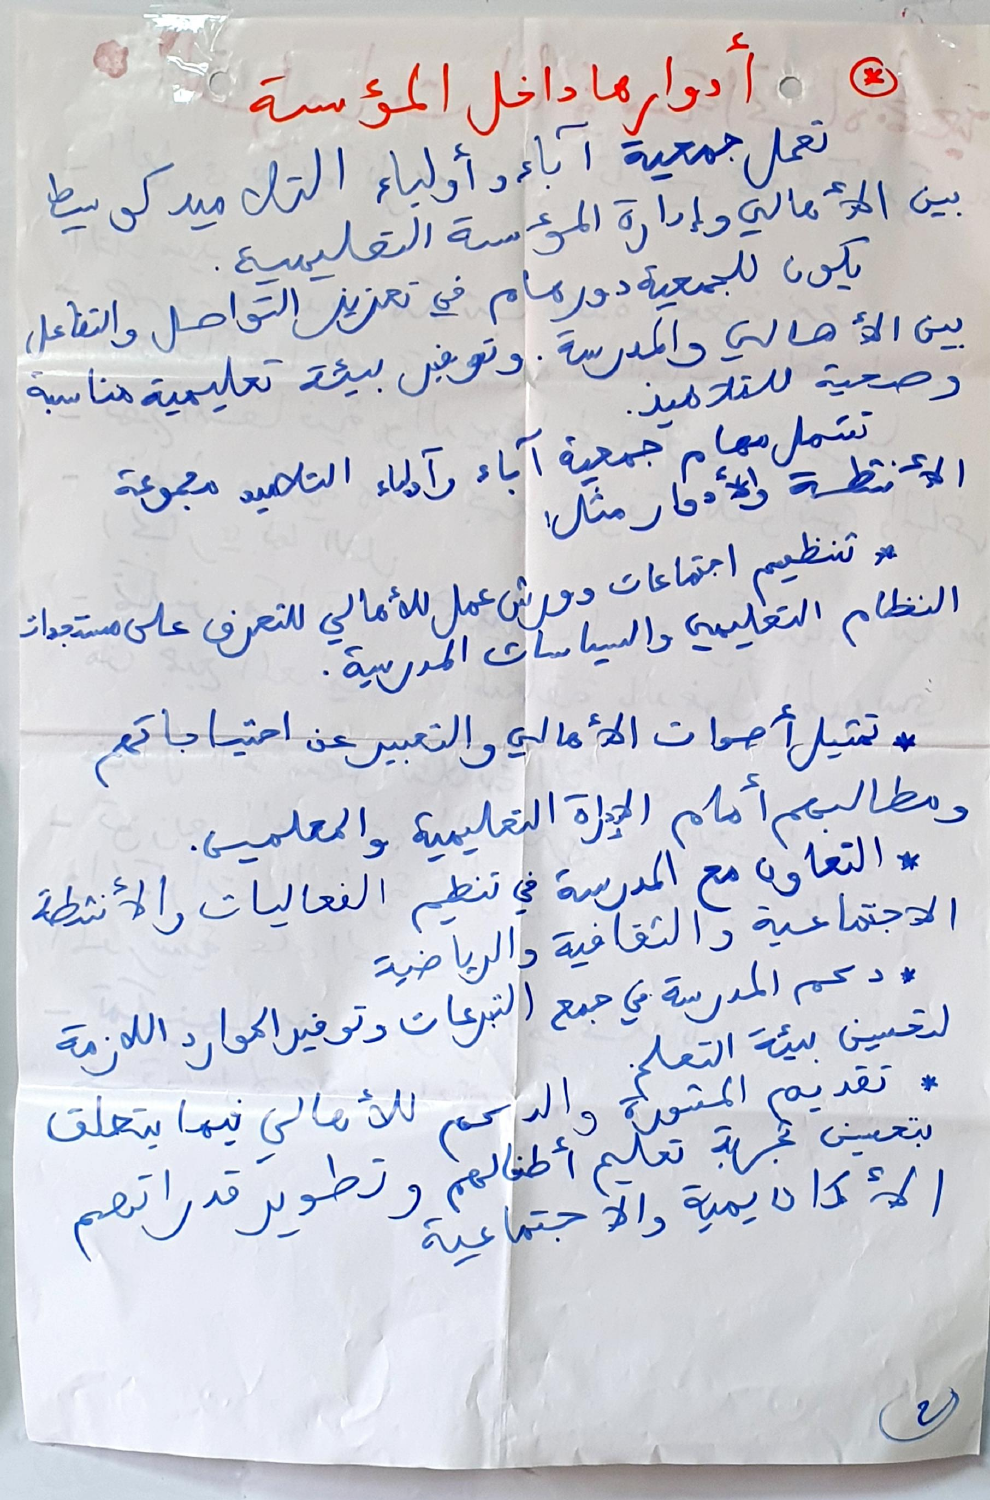 * أدوارها داخل المؤسسة
تعمل جمعية آباء وأولياء التلاميذ كوسيط
بين الأهالي وإدارة المؤسسة التعليمية.
يكون للجمعية دور هام في تعزيز التواصل والتفاعل
بين الأهالي والمدرسة. وتوفير بيئة تعليمية مناسبة
وصحية للتلاميذ.
تشمل مهام جمعية آباء وآولياء التلاميذ مجموعة
الأنشطة والأدوار مثل:
* تنظيم اجتماعات وورش عمل للأهالي للتعرف على مستجدات
النظام التعليمي والسياسات المدرسية.
* تمثيل أصوات الأهالي والتعبير عن احتياجاتهم
ومطالبهم أمام الإدارة التعليمية والمعلمين.
* التعاون مع المدرسة في تنظيم الفعاليات والأنشطة
الاجتماعية والثقافية والرياضية
* دعم المدرسة في جمع التبرعات وتوفير الموارد اللازمة
لتحسين بيئة التعلم.
* تقديم المشورة والدعم للأهالي فيما يتعلق
بتحسين تجربة تعليم أطفالهم وتطوير قدراتهم
الأكاديمية والاجتماعية